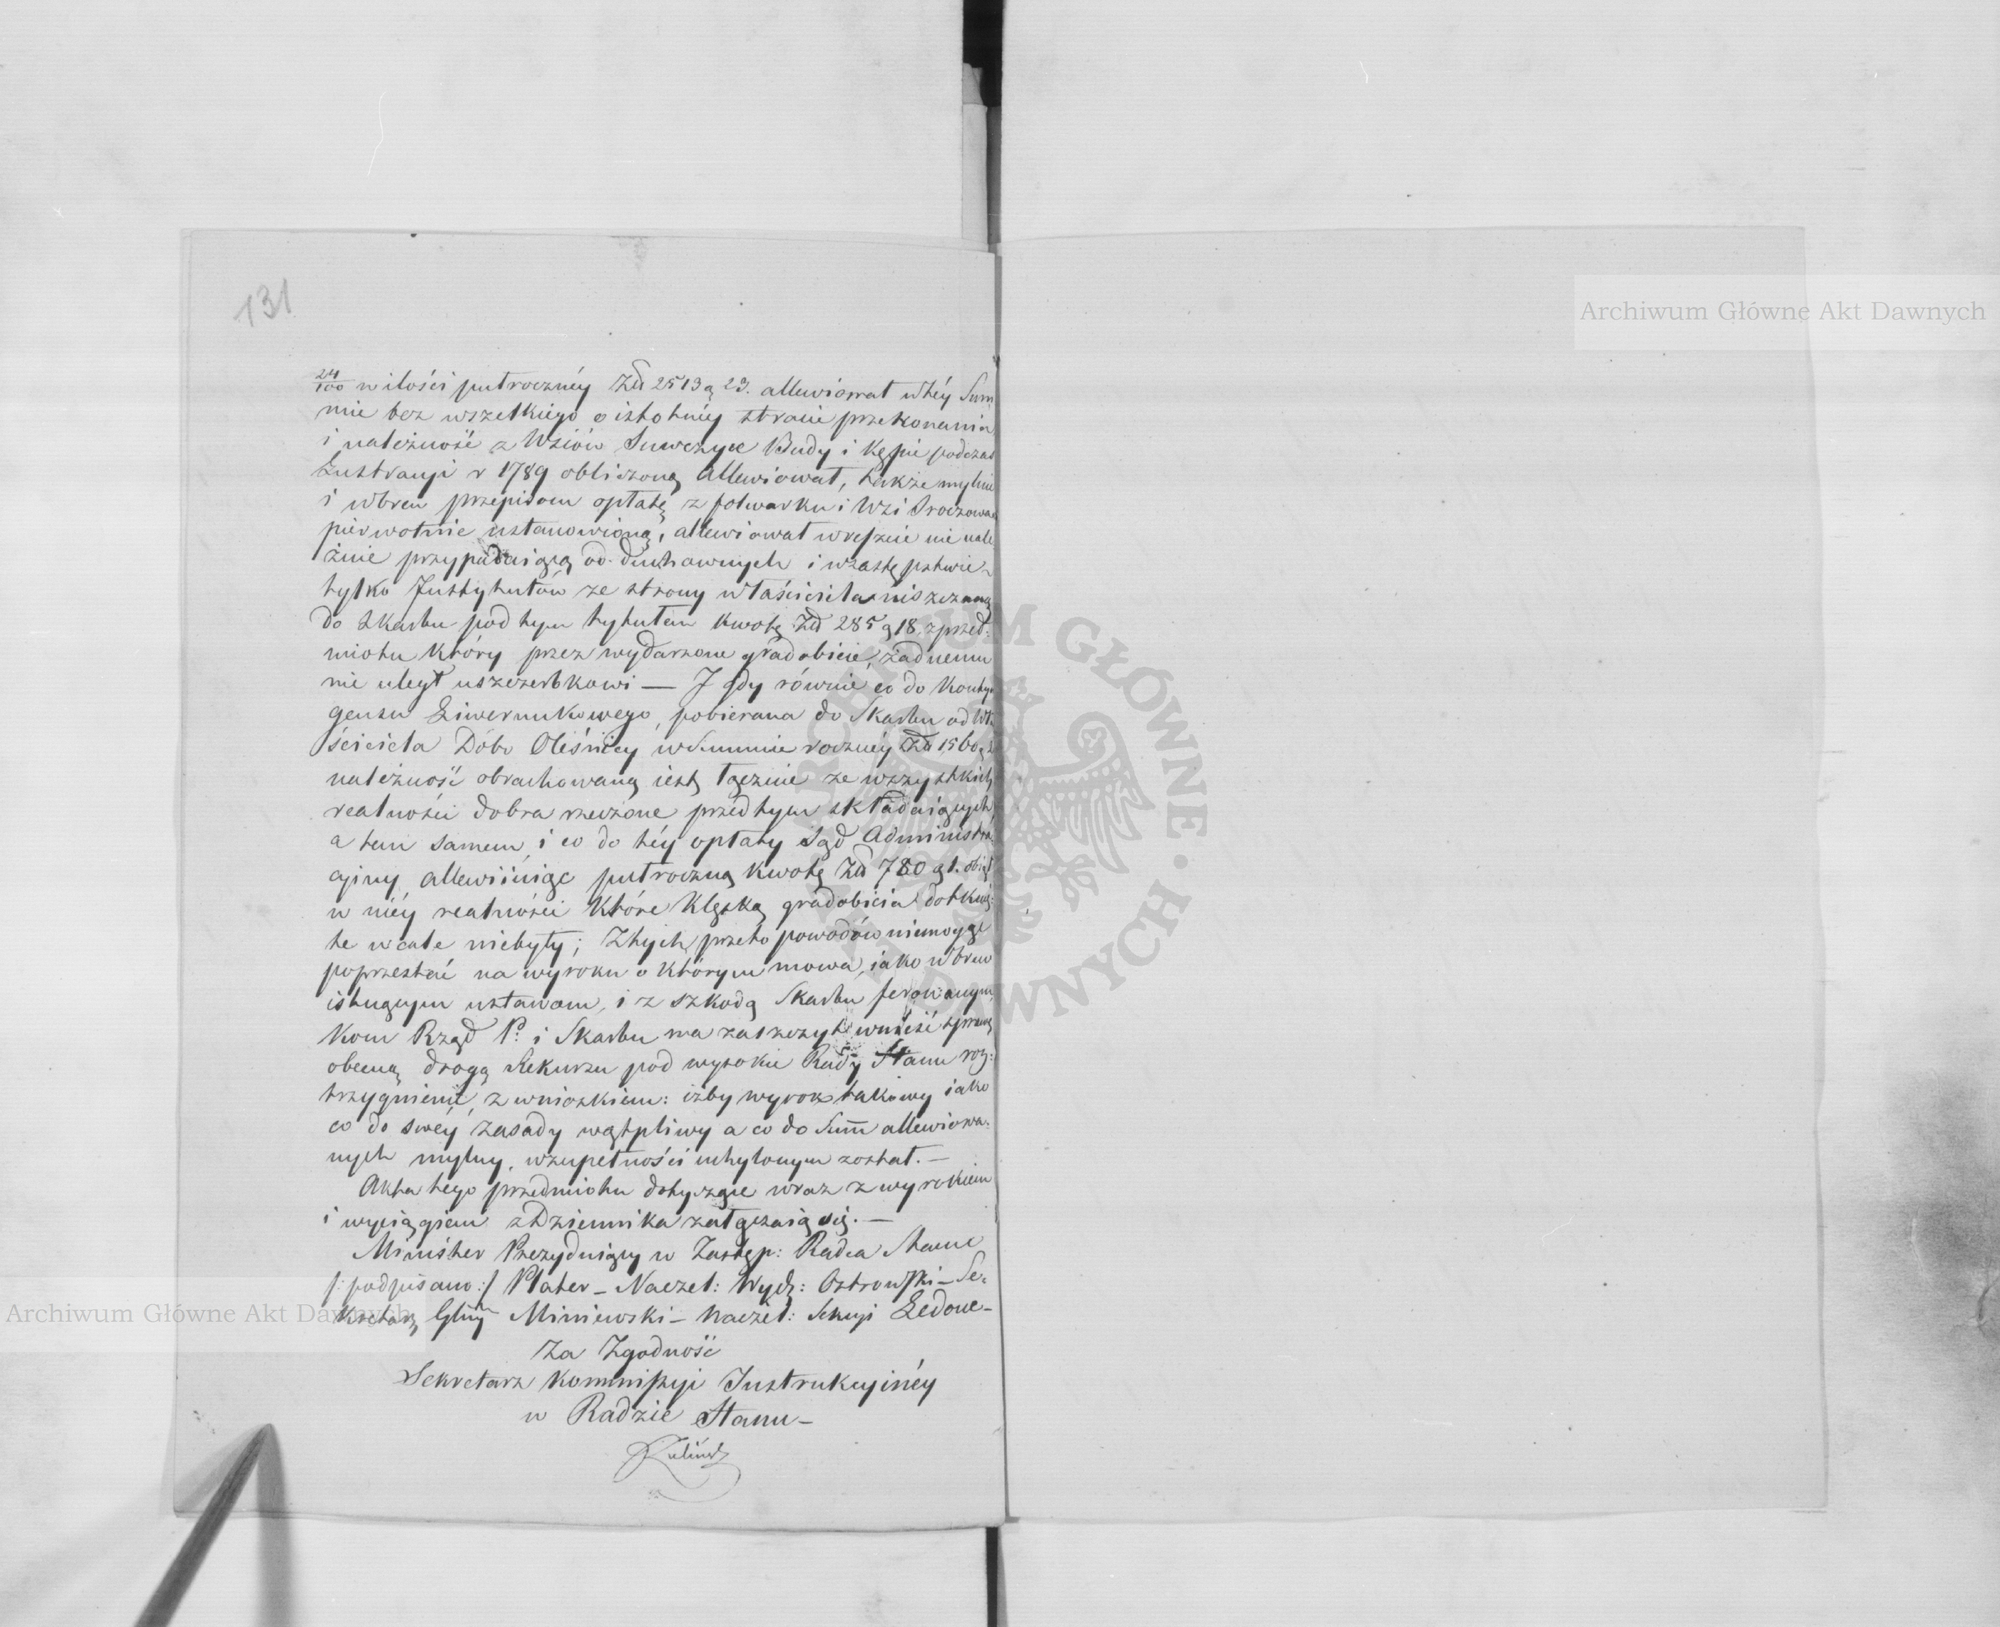 131
24/100 w ilości putroczńey Złł 2513 g 23. allewiował w téy Sum
mie bez wszelkiego o istotnéy stracie przekonania
i należność z Wsiów Suwczyce Budy i Kępie podczas
Lustracyi r 1789 obliczoną allewiował, także mylnie
i wbrew przepisom opłatę z folwarku i Wsi
pierwotnie ustanowioną, allewiował wreszcie nie nale
żnie przypadaiącą od duchownych i
tylko Instytutów ze strony właściciela niszczoną
do Skarbu pod tym tytułem kwotę Złł 285 g 18, z przed:
miotu który przez wydarzone gradobicie, żadnemu
nie uległ uszczerbkowi — I gdy równie co do Kontyn
gensu Liwerunkowego, pobierana do Skarbu od Wła
ściciela Dóbr Oleśnicy w Summie roczńey Złł 1560 g
należność obrachowaną iest łącznie ze wszystkich
realności dobra rzeczone przedtym składaiących,
a tem samem, i co do téy opłaty Sąd Administra
cyiny, allewiiuiąc putroczną kwotę Złł 780 g 1. obiął
w niéy realności które klęską gradobicia dotknię:
te wcale niebyły; Z tych przeto powodów niemogąc
poprzestać na wyroku o którym mowa, iako wbrew
istnącym ustawom, i z szkodą Skarbu ferowanym,
Kom Rząd P. i Skarbu ma zaszczyt wnieść sprawę
obecną drogą Rekursu pod wysokie Rady Stanu roz:
trzygnienie, z wnioskiem: iżby wyrok takowy iako
co do swéy zasady wątpliwy a co do Summ allewiowa:
nych mylny, wzupełności uchylonym został. —
Akta tego przedmiotu dotyczące wraz z wyrokiem
i wyciągiem z Dziennika załączaią się. —
Minister Prezyduiący w Zastęp: Radca Stanu
/:podpisano:/ Plater — Naczel: Wydz: Ostrowski — Se:
kretarz Glny Miniewski — Naczel: Sekcyi Ledoue —
Za Zgodność
Sekretarz Kommissyi Instrukcyinéy
w Radzie Stanu —
Archiwum Główne Akt Dawnych
Archiwum Główne Akt Dawnych
ARCHIWUM GŁÓWNE · AKT DAWNYCH ·